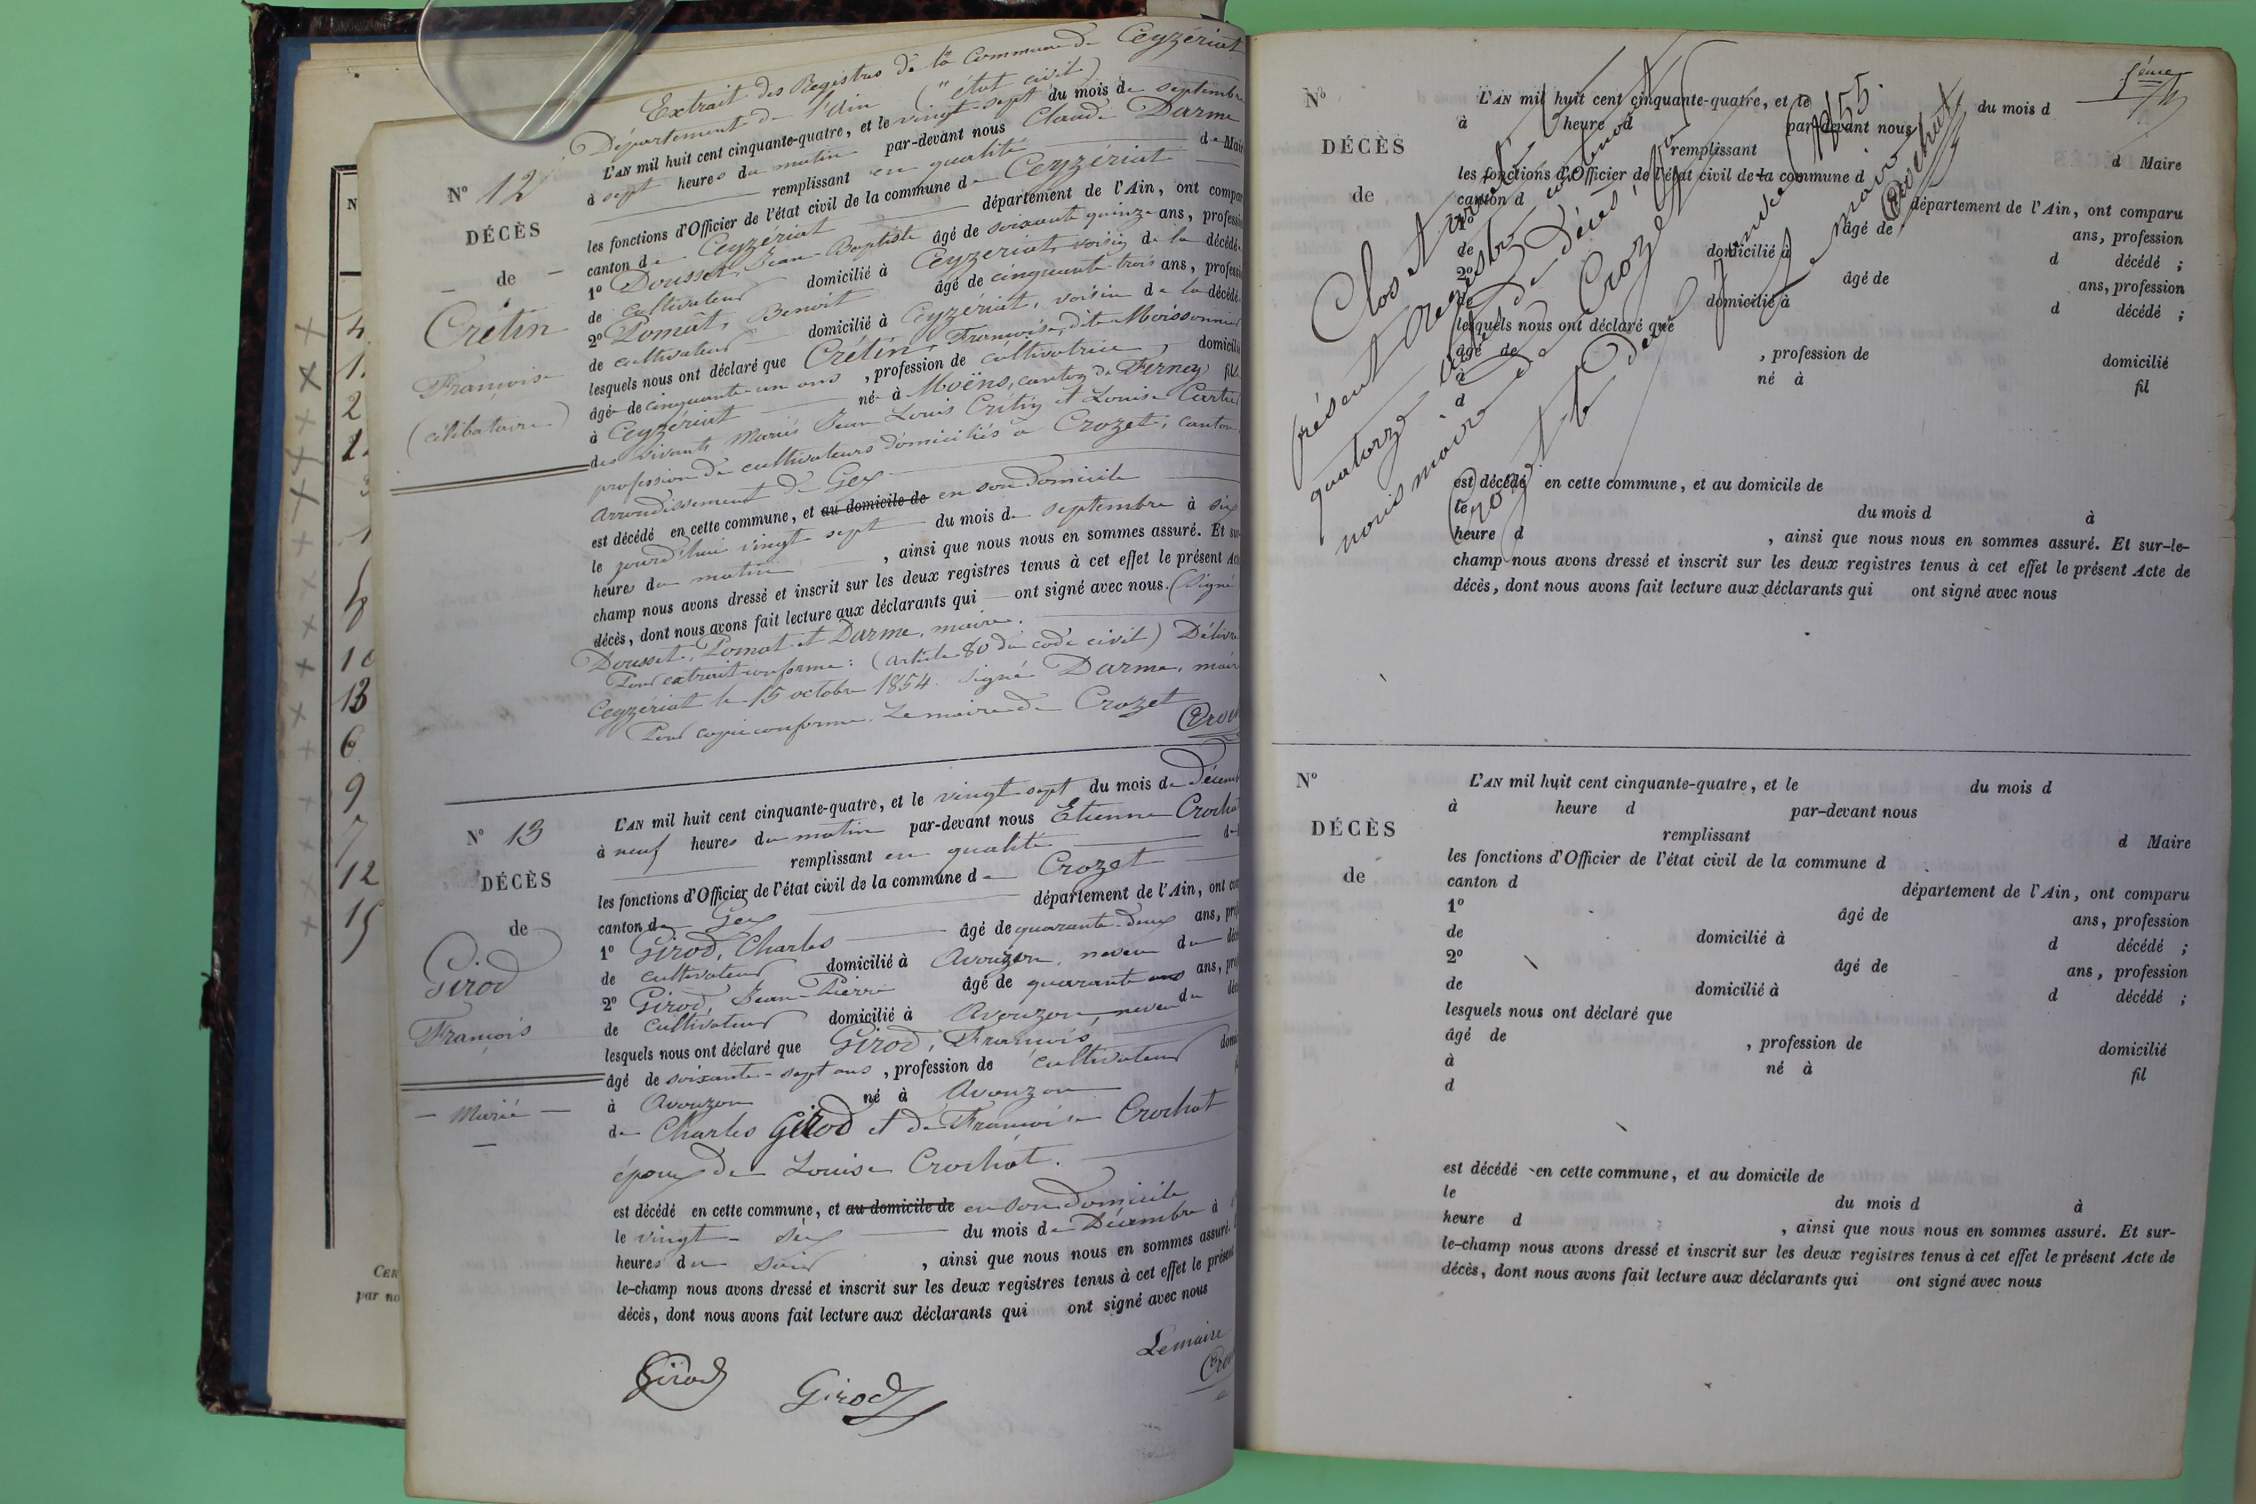 Extrait des Registres de la Commune de Ceyzériat
Département de l'Ain (état civil)
L'AN mil huit cent cinquante-quatre, et le vingt-sept du mois de septembre
à sept heures du matin par-devant nous Claude Darme
remplissant en qualité de Maire
les fonctions d'Officier de l'état civil de la commune de Ceyzériat
canton de Ceyzériat département de l'Ain, ont compar
1° Dousset, Jean-Baptiste âgé de soixante quinze ans, profession
de cultivateur domicilié à Ceyzériat, voisin de la décédé
2° Pomat, Benoit âgé de cinquante-trois ans, profess
de cultivateur domicilié à Ceyzériat, voisin de la décédé
lesquels nous ont déclaré que Crétin, Françoise, dite Moissonnier
âgée de cinquante-un ans, profession de cultivatrice, domicili
à Ceyzériat née à Moëns, canton de Ferney fil
des vivants Mariés Jean Louis Crétin et Louise Cartie
profession de cultivateurs domiciliés à Crozet, canton
arrondissement de Gex
est décédé en cette commune, et au domicile de en son domicile
le jourd'hui vingt sept du mois de septembre à six
heures du matin, ainsi que nous nous en sommes assuré. Et su
champ nous avons dressé et inscrit sur les deux registres tenus à cet effet le présent Ac
décès, dont nous avons fait lecture aux déclarants qui ont signé avec nous. (Signé
Dousset, Pomat et Darme, maire.
Pour extrait conforme: (article 80 du code civil) Délivré
Ceyzériat le 15 octobre 1854. Signé Darme, mair
Pour copie conforme. Le maire de Crozet
N° 12
DÉCÈS
de
Crétin
Françoise
(célibataire)
L'AN mil huit cent cinquante-quatre, et le vingt-sept du mois de Décem
à neuf heures du matin par-devant nous Etienne Crochat
remplissant en qualité
les fonctions d'Officier de l'état civil de la commune de Crozet
canton de Gex département de l'Ain, ont co
1° Girod, Charles âgé de quarante-deux ans, pro
de cultivateur domicilié à Avouzon, neveu du déc
2° Girod, Jean-Pierre âgé de quarante ans ans, pro
de cultivateur domicilié à Avouzon, neveu du déc
lesquels nous ont déclaré que Girod, François,
âgé de soixante-sept ans, profession de cultivateur domi
à Avouzon né à Avouzon
de Charles Girod et de Françoise Crochat
époux de Louise Crochat.
est décédé en cette commune, et au domicile de en son domicile
le vingt-six du mois de Décembre à
heures du soir, ainsi que nous nous en sommes assuré.
le-champ nous avons dressé et inscrit sur les deux registres tenus à cet effet le présent
décès, dont nous avons fait lecture aux déclarants qui ont signé avec nous
Girod Girod Le maire
N° 13
DÉCÈS
de
Girod
François
— Marié —
N
4
1
2
1
10
13
6
9
7
12
15
CER
par no
N°
DÉCÈS
de
L'AN mil huit cent cinquante-quatre, et le du mois d
à heure d par-devant nous
remplissant d Maire
les fonctions d'Officier de l'état civil de la commune d
canton d département de l'Ain, ont comparu
1° âgé de ans, profession
de domicilié à d décédé ;
2° âgé de ans, profession
de domicilié à d décédé ;
lesquels nous ont déclaré que
âgé de , profession de domicilié
à né à fil
d
est décédé en cette commune, et au domicile de
le du mois d à
heure d , ainsi que nous nous en sommes assuré. Et sur-le-
champ nous avons dressé et inscrit sur les deux registres tenus à cet effet le présent Acte de
décès, dont nous avons fait lecture aux déclarants qui ont signé avec nous
Clos et arrêté le
présent Registre contenant
quatorze actes de Décès,
nous maire de Crozet
Crozet le Deux Janvier 1855.
Le maire
Crochat
N°
DÉCÈS
de
L'AN mil huit cent cinquante-quatre, et le du mois d
à heure d par-devant nous
remplissant d Maire
les fonctions d'Officier de l'état civil de la commune d
canton d département de l'Ain, ont comparu
1° âgé de ans, profession
de domicilié à d décédé ;
2° âgé de ans, profession
de domicilié à d décédé ;
lesquels nous ont déclaré que
âgé de , profession de domicilié
à né à fil
d
est décédé en cette commune, et au domicile de
le du mois d à
heure d , ainsi que nous nous en sommes assuré. Et sur-
le-champ nous avons dressé et inscrit sur les deux registres tenus à cet effet le présent Acte de
décès, dont nous avons fait lecture aux déclarants qui ont signé avec nous